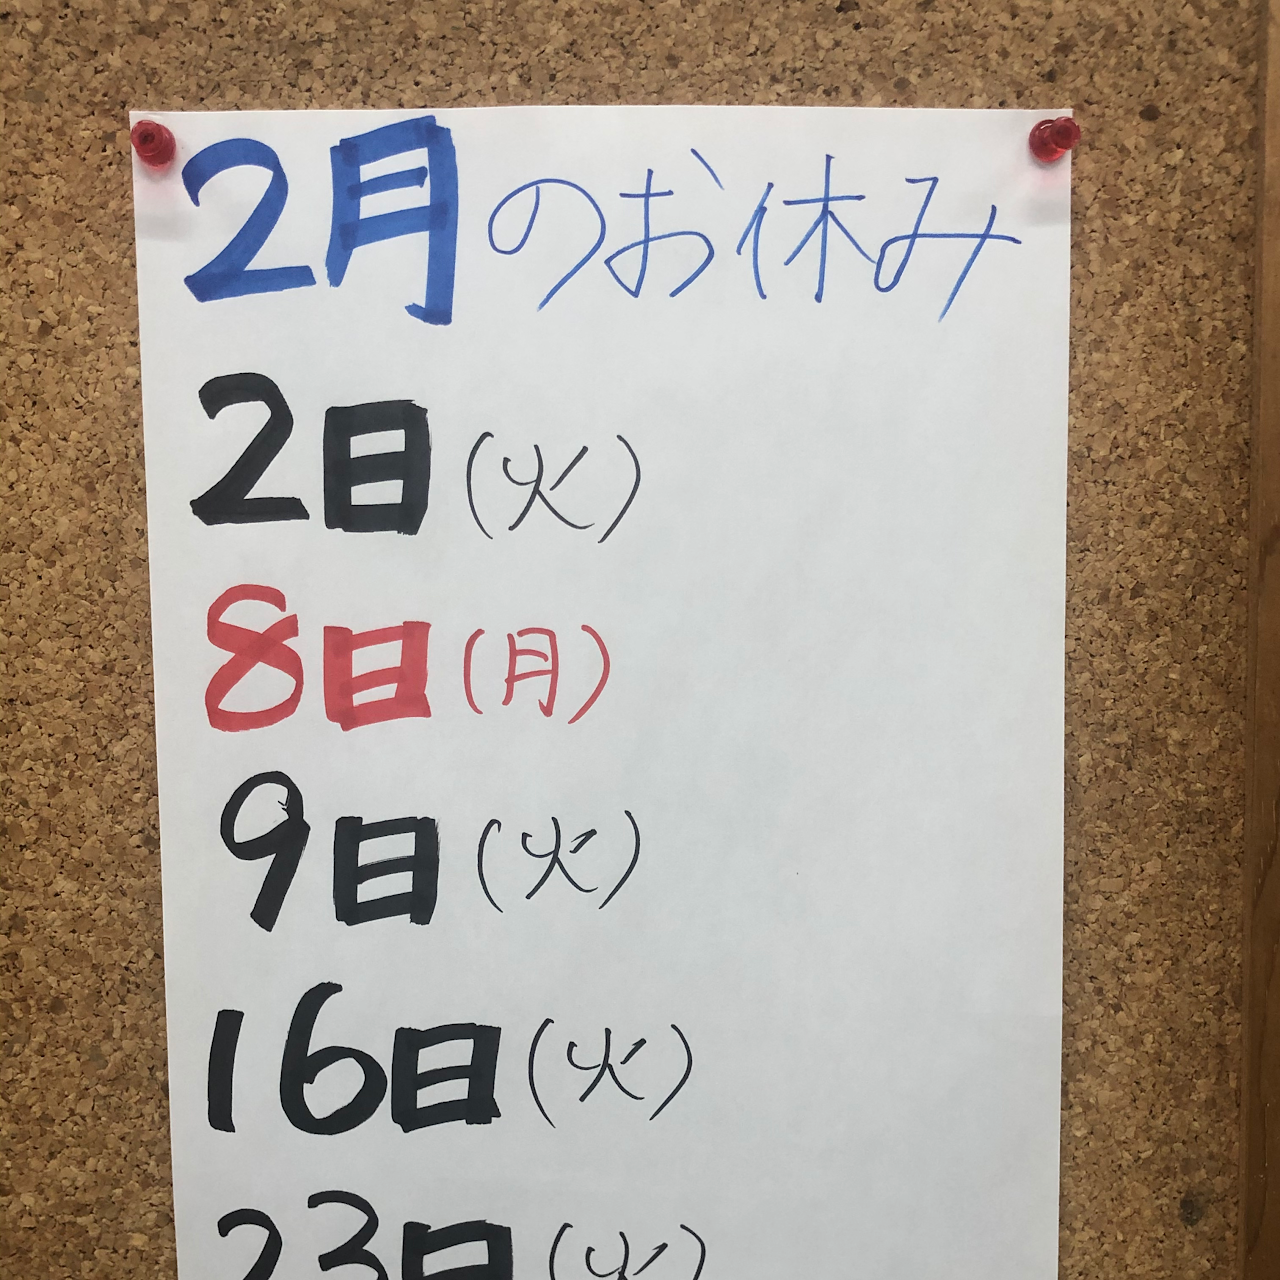 2月のお休み
2日(火)
8日(月)
9日(火)
16日(火)
23日(火)